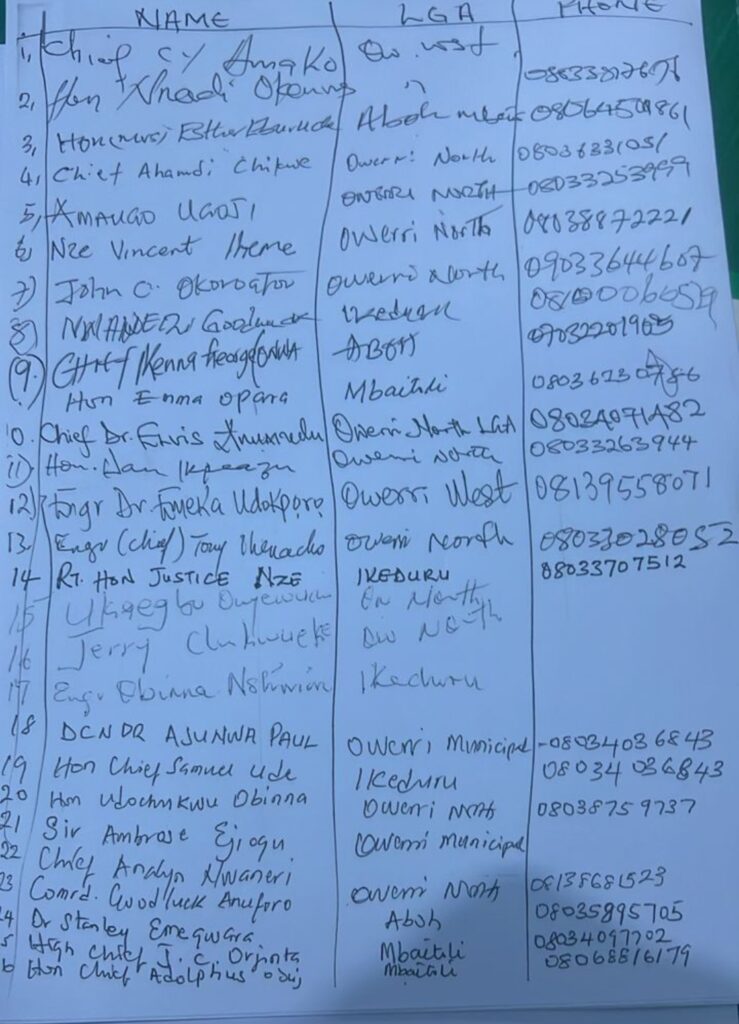 NAME LGA PHONE
1, Chief CY Amako Ow. West
2, Hon Nnadi Okenna " 08033827676
3, Hon(mrs) Esther Aboh mbaise 08064509861
4, Chief Ahamdi Chikwe Owerri North 08036331051
5, AMAUGO UGOJI OWERRI NORTH 08033253999
6 Nze Vincent Iheme Owerri North 08038872221
7) John C. Okoroafor Owerri North 09033644607
8) Goodluck Ikeduru
9. Chief Ikenna George ABOH 07032201905
Hon Emma Opara Mbaitoli 08036230786
0. Chief Dr. Enunwa Owerri North LGA 08034071482
11) Hon. Dan Ikpeazu Owerri North 08033263944
12) Engr Dr. Emeka Udokporo Owerri West 08139558071
13. Engr (chief) Tony Ihenacho Owerri North 08033028052
14 RT. HON JUSTICE NZE IKEDURU 08033707512
15 Ukaegbu Onyewuchi Ow North
16 Jerry Chukwueke Ow North
17 Engr Obinna Nshirim Ikeduru
18 DCN DR AJUNWA PAUL Owerri Municipal -08034036843
19 Hon Chief Samuel Ude IKeduru 08034036843
20 Hon Udochukwu Obinna Owerri North 08038759737
21 Sir Ambrose Ejiogu Owerri municipal
22 Chief Analyn Nwaneri
23 Comrd. Goodluck Anuforo Owerri North 08138681523
4 Dr Stanley Emegwara Aboh 08035895705
5 High Chief J. C. Orjinta Mbaitoli 08034097702
6 Hon Chief Adolphus Mbaitoli 08068816179